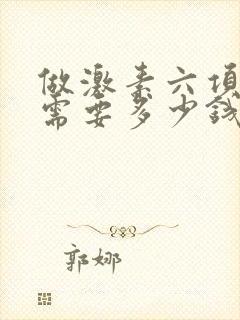 做激素六项
需要多少钱
郭娜